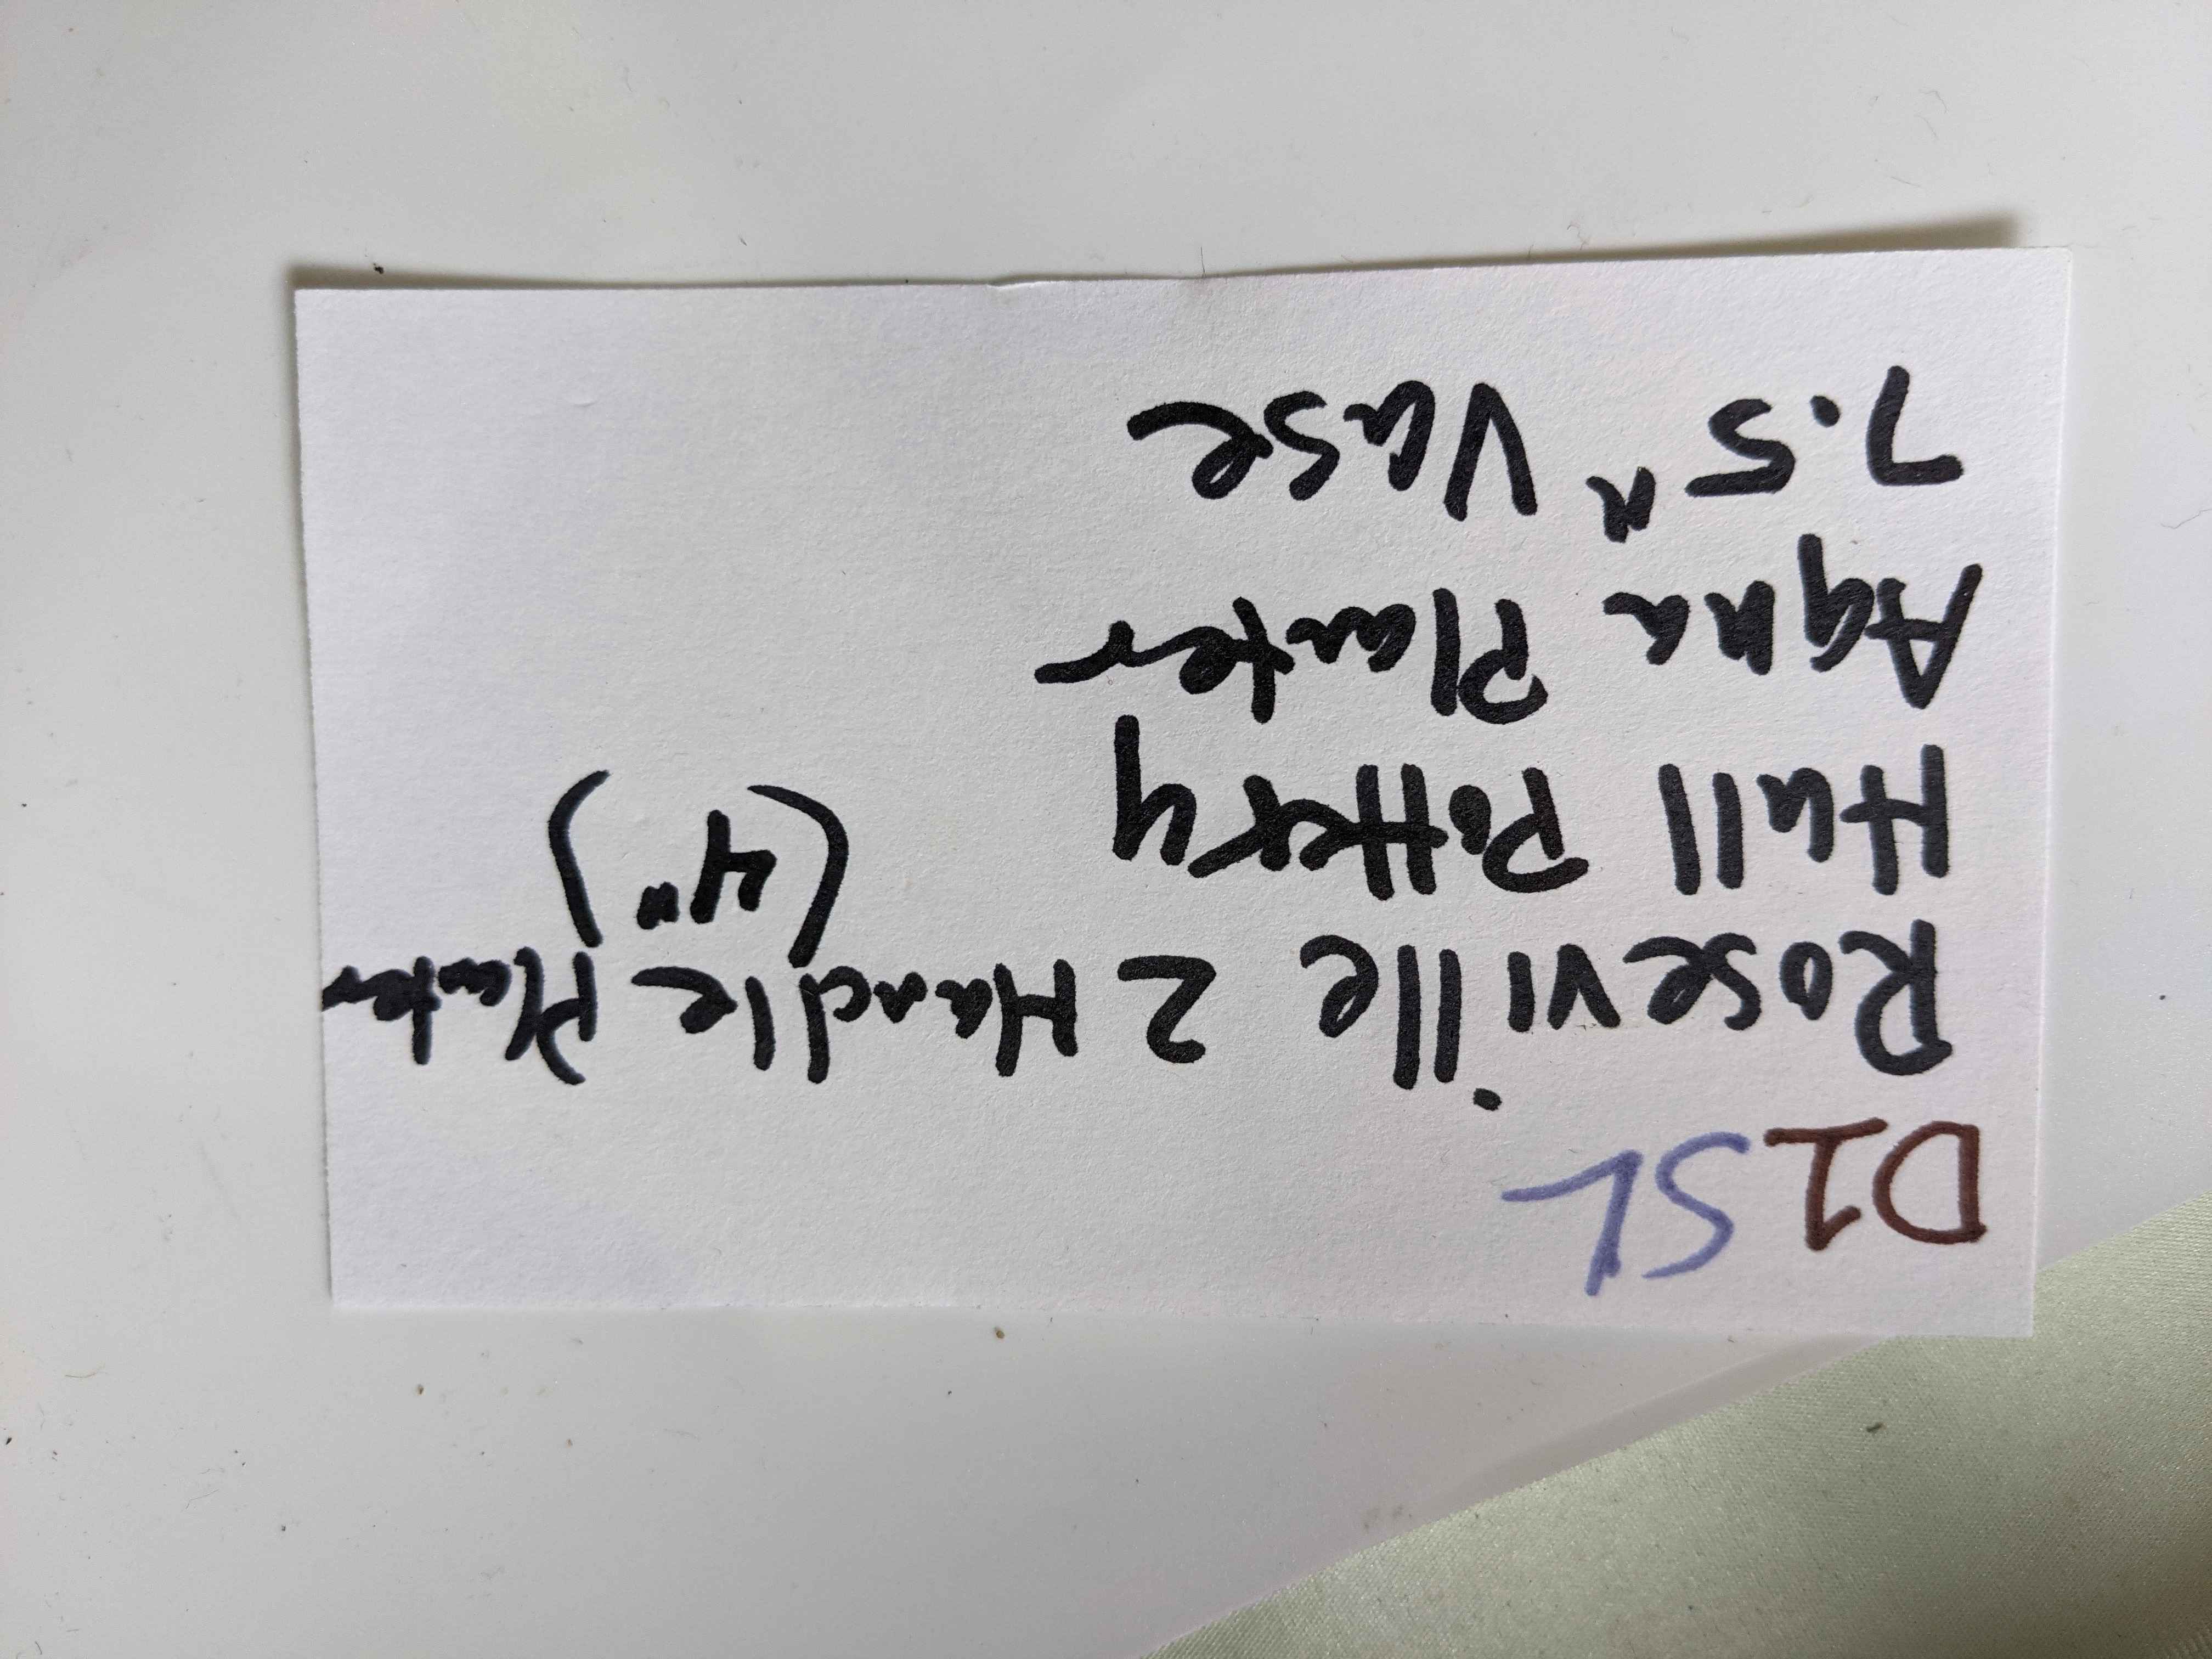 D1SL
Roseville 2 Handle Planter
(4")
Hull Pottery
Aqua Planter
7.5" Vase